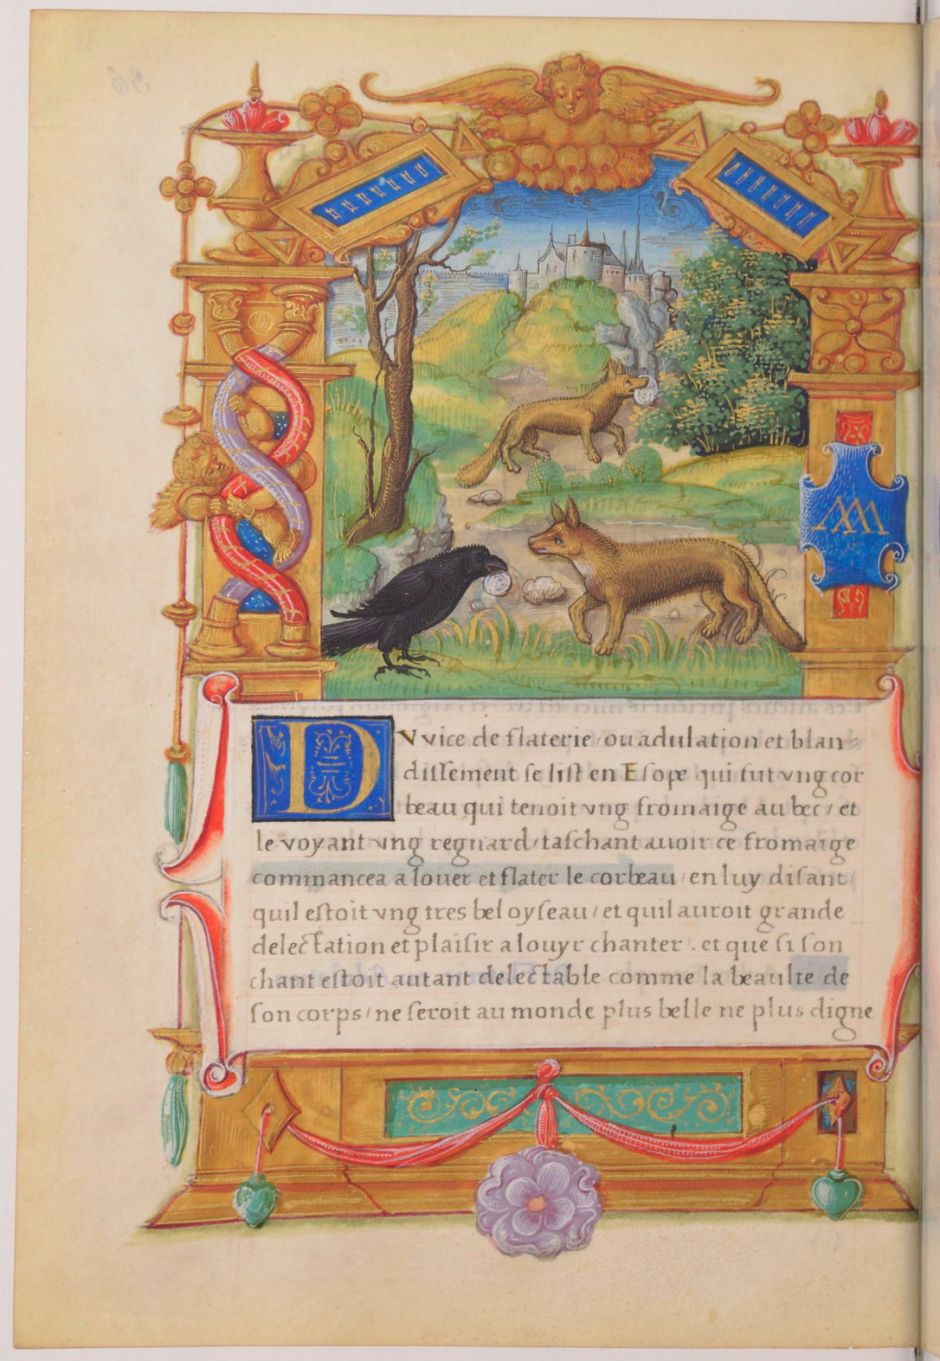 DV vice de flaterie / ou adulation et blan=
dissement se list en Esope qui fut vng cor
beau qui tenoit vng fromaige au bec / et
le voyant vng regnard / taschant auoir ce fromaige
commancea a louer et flater le corbeau / en luy disant /
quil estoit vng tres bel oyseau / et quil auroit grande
delectation et plaisir a louyr chanter . et que si son
chant estoit autant delectable comme la beaulte de
son corps / ne seroit au monde plus belle ne plus digne